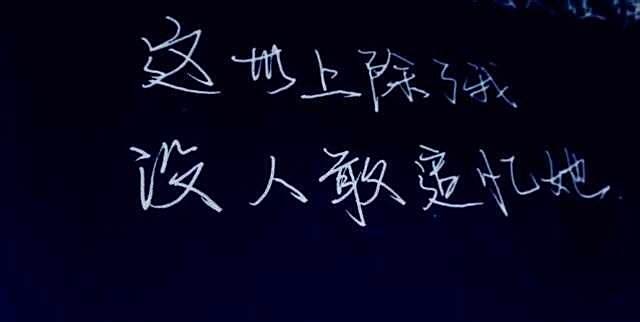 这世上除了我
没人敢忆她